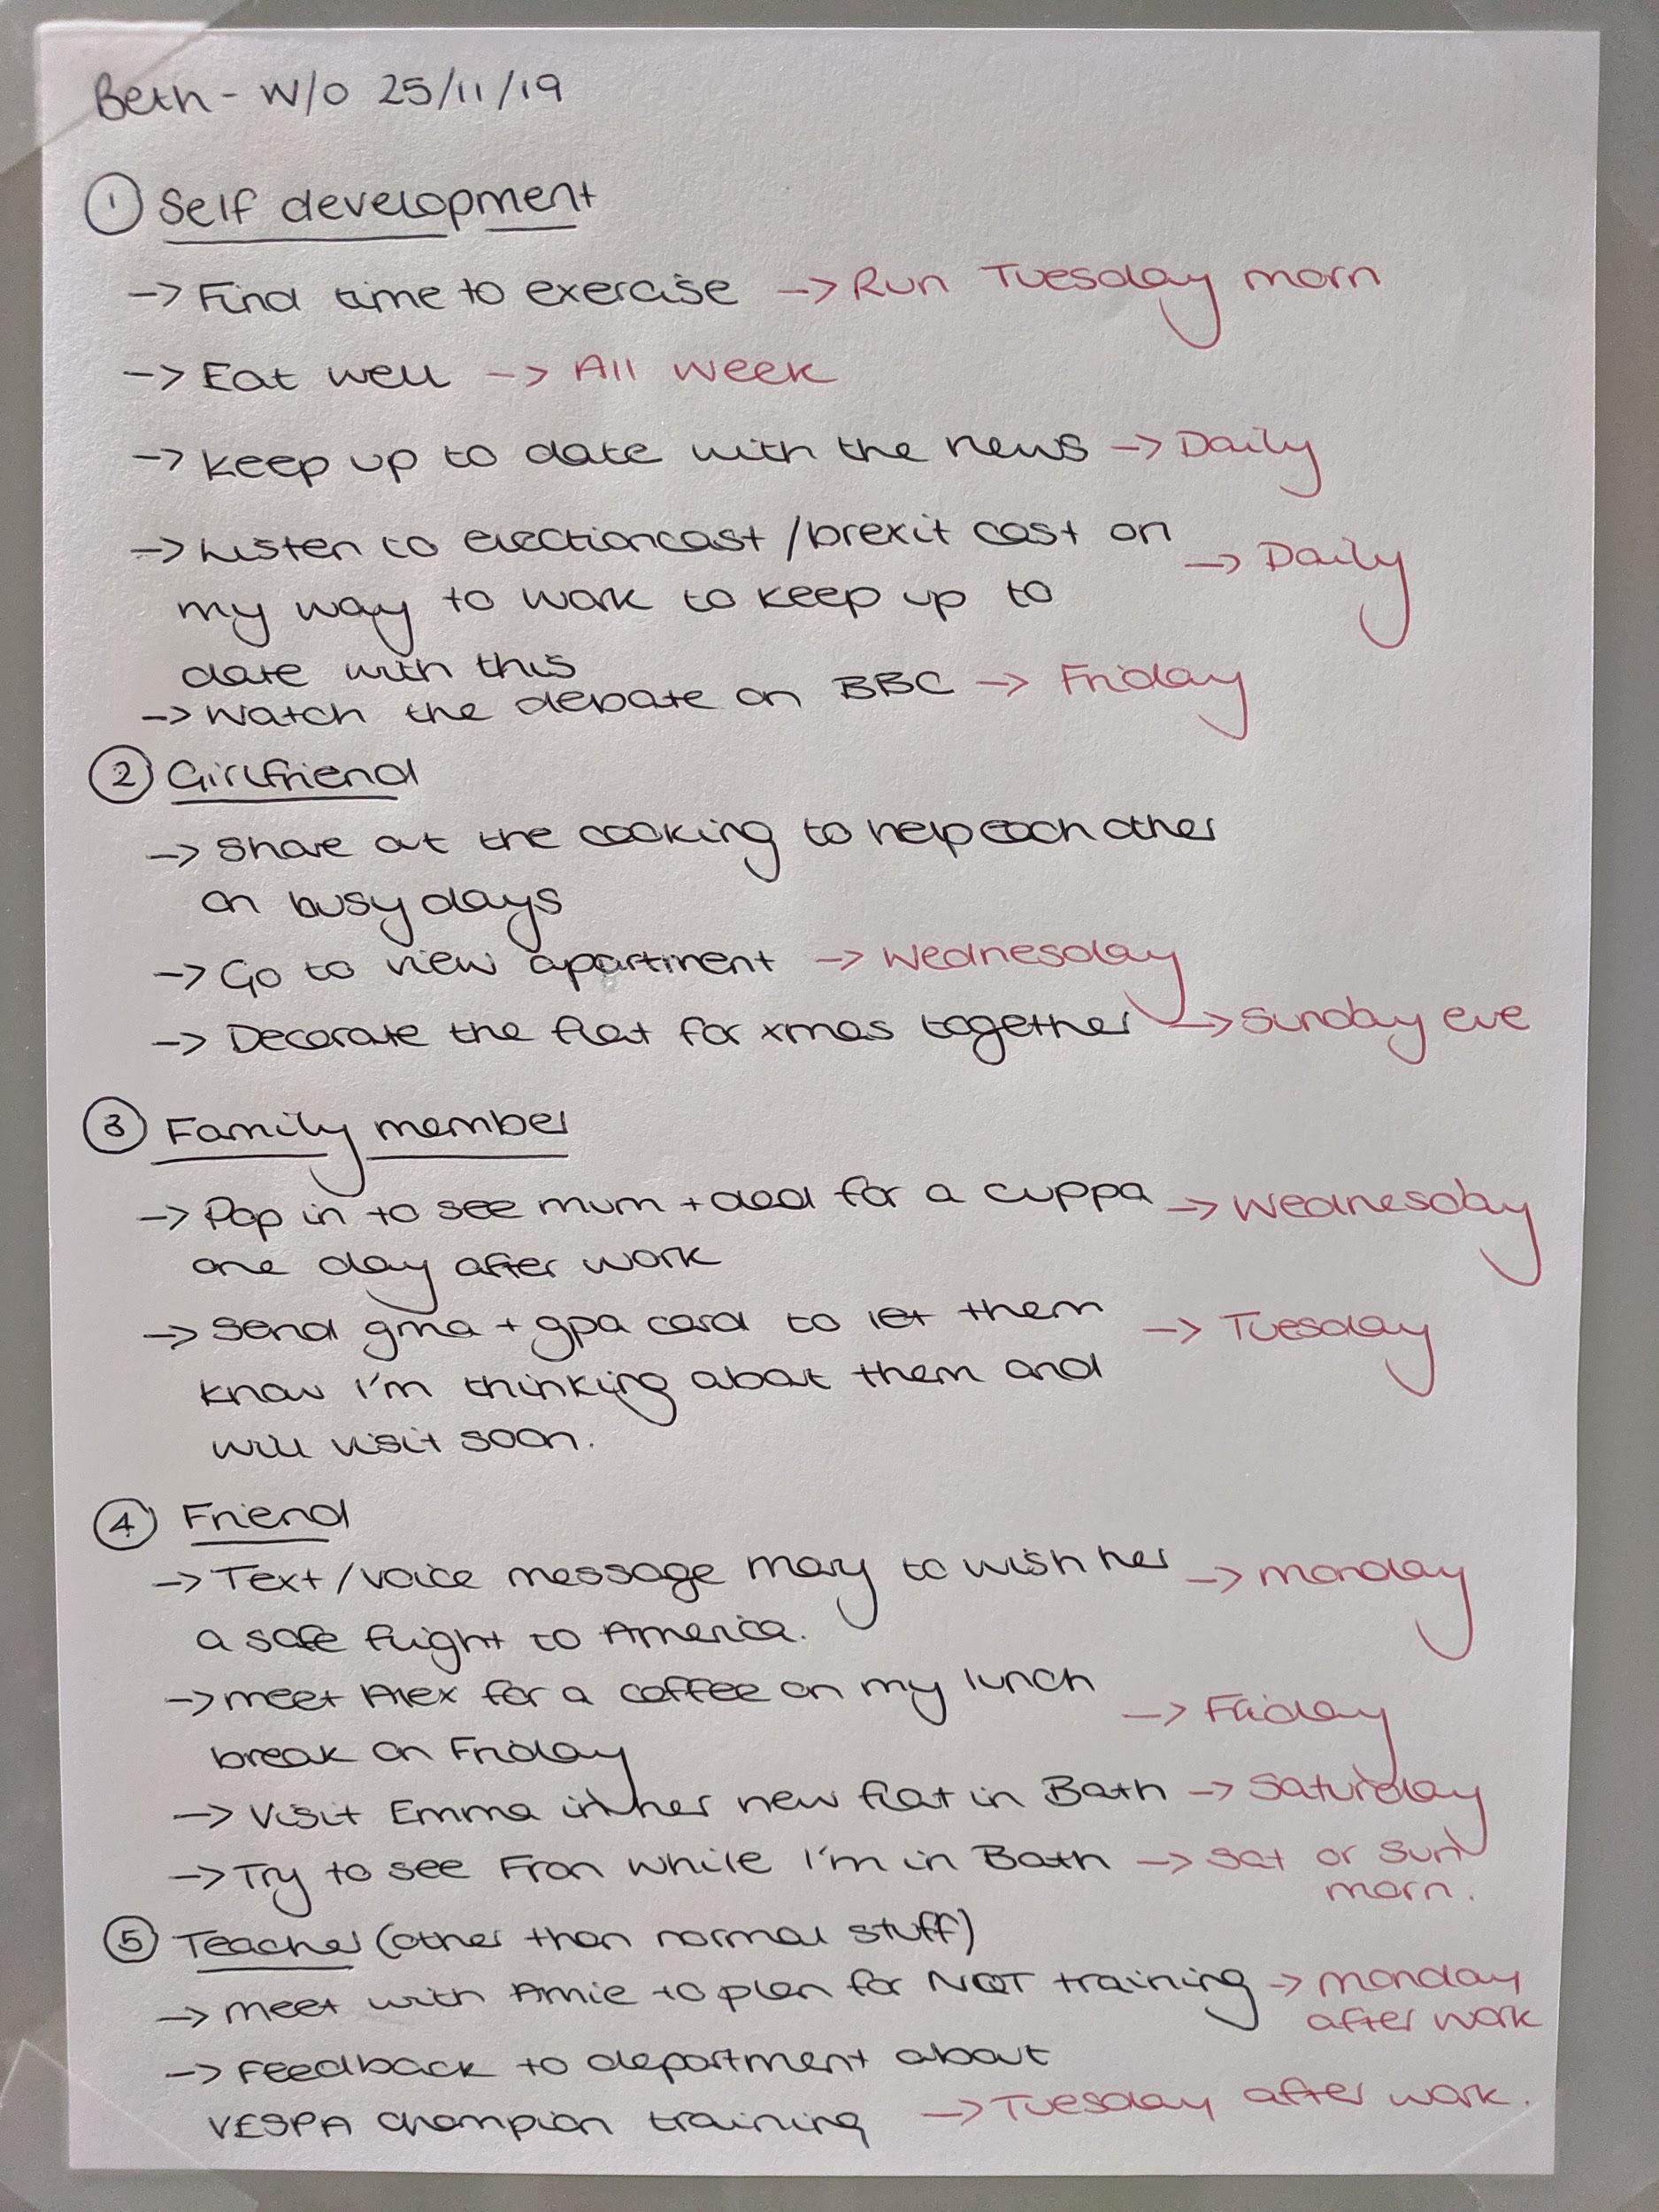 Beth - W/O 25/11/19
① Self development
→ Find time to exercise → Run Tuesday morn
→ Eat well → All week
→ Keep up to date with the news → Daily
→ Listen to electioncast/brexit cast on → Daily
my way to work to keep up to
date with this
→ Watch the debate on BBC → Friday
② Girlfriend
→ Share out the cooking to help each other
on busy days
→ Go to view apartment → Wednesday
→ Decorate the flat for xmas together → Sunday eve
③ Family member
→ Pop in to see mum + dad for a cuppa → Wednesday
one day after work
→ Send gma + gpa card to let them → Tuesday
know I'm thinking about them and
will visit soon.
④ Friend
→ Text/voice message Mary to wish her → Monday
a safe flight to America.
→ Meet Alex for a coffee on my lunch → Friday
break on Friday
→ Visit Emma in her new flat in Bath → Saturday
→ Try to see Fran while I'm in Bath → Sat or Sun
morn.
⑤ Teacher (other than normal stuff)
→ Meet with Amie to plan for NQT training → Monday
after work
→ Feedback to department about
VESPA champion training → Tuesday after work.